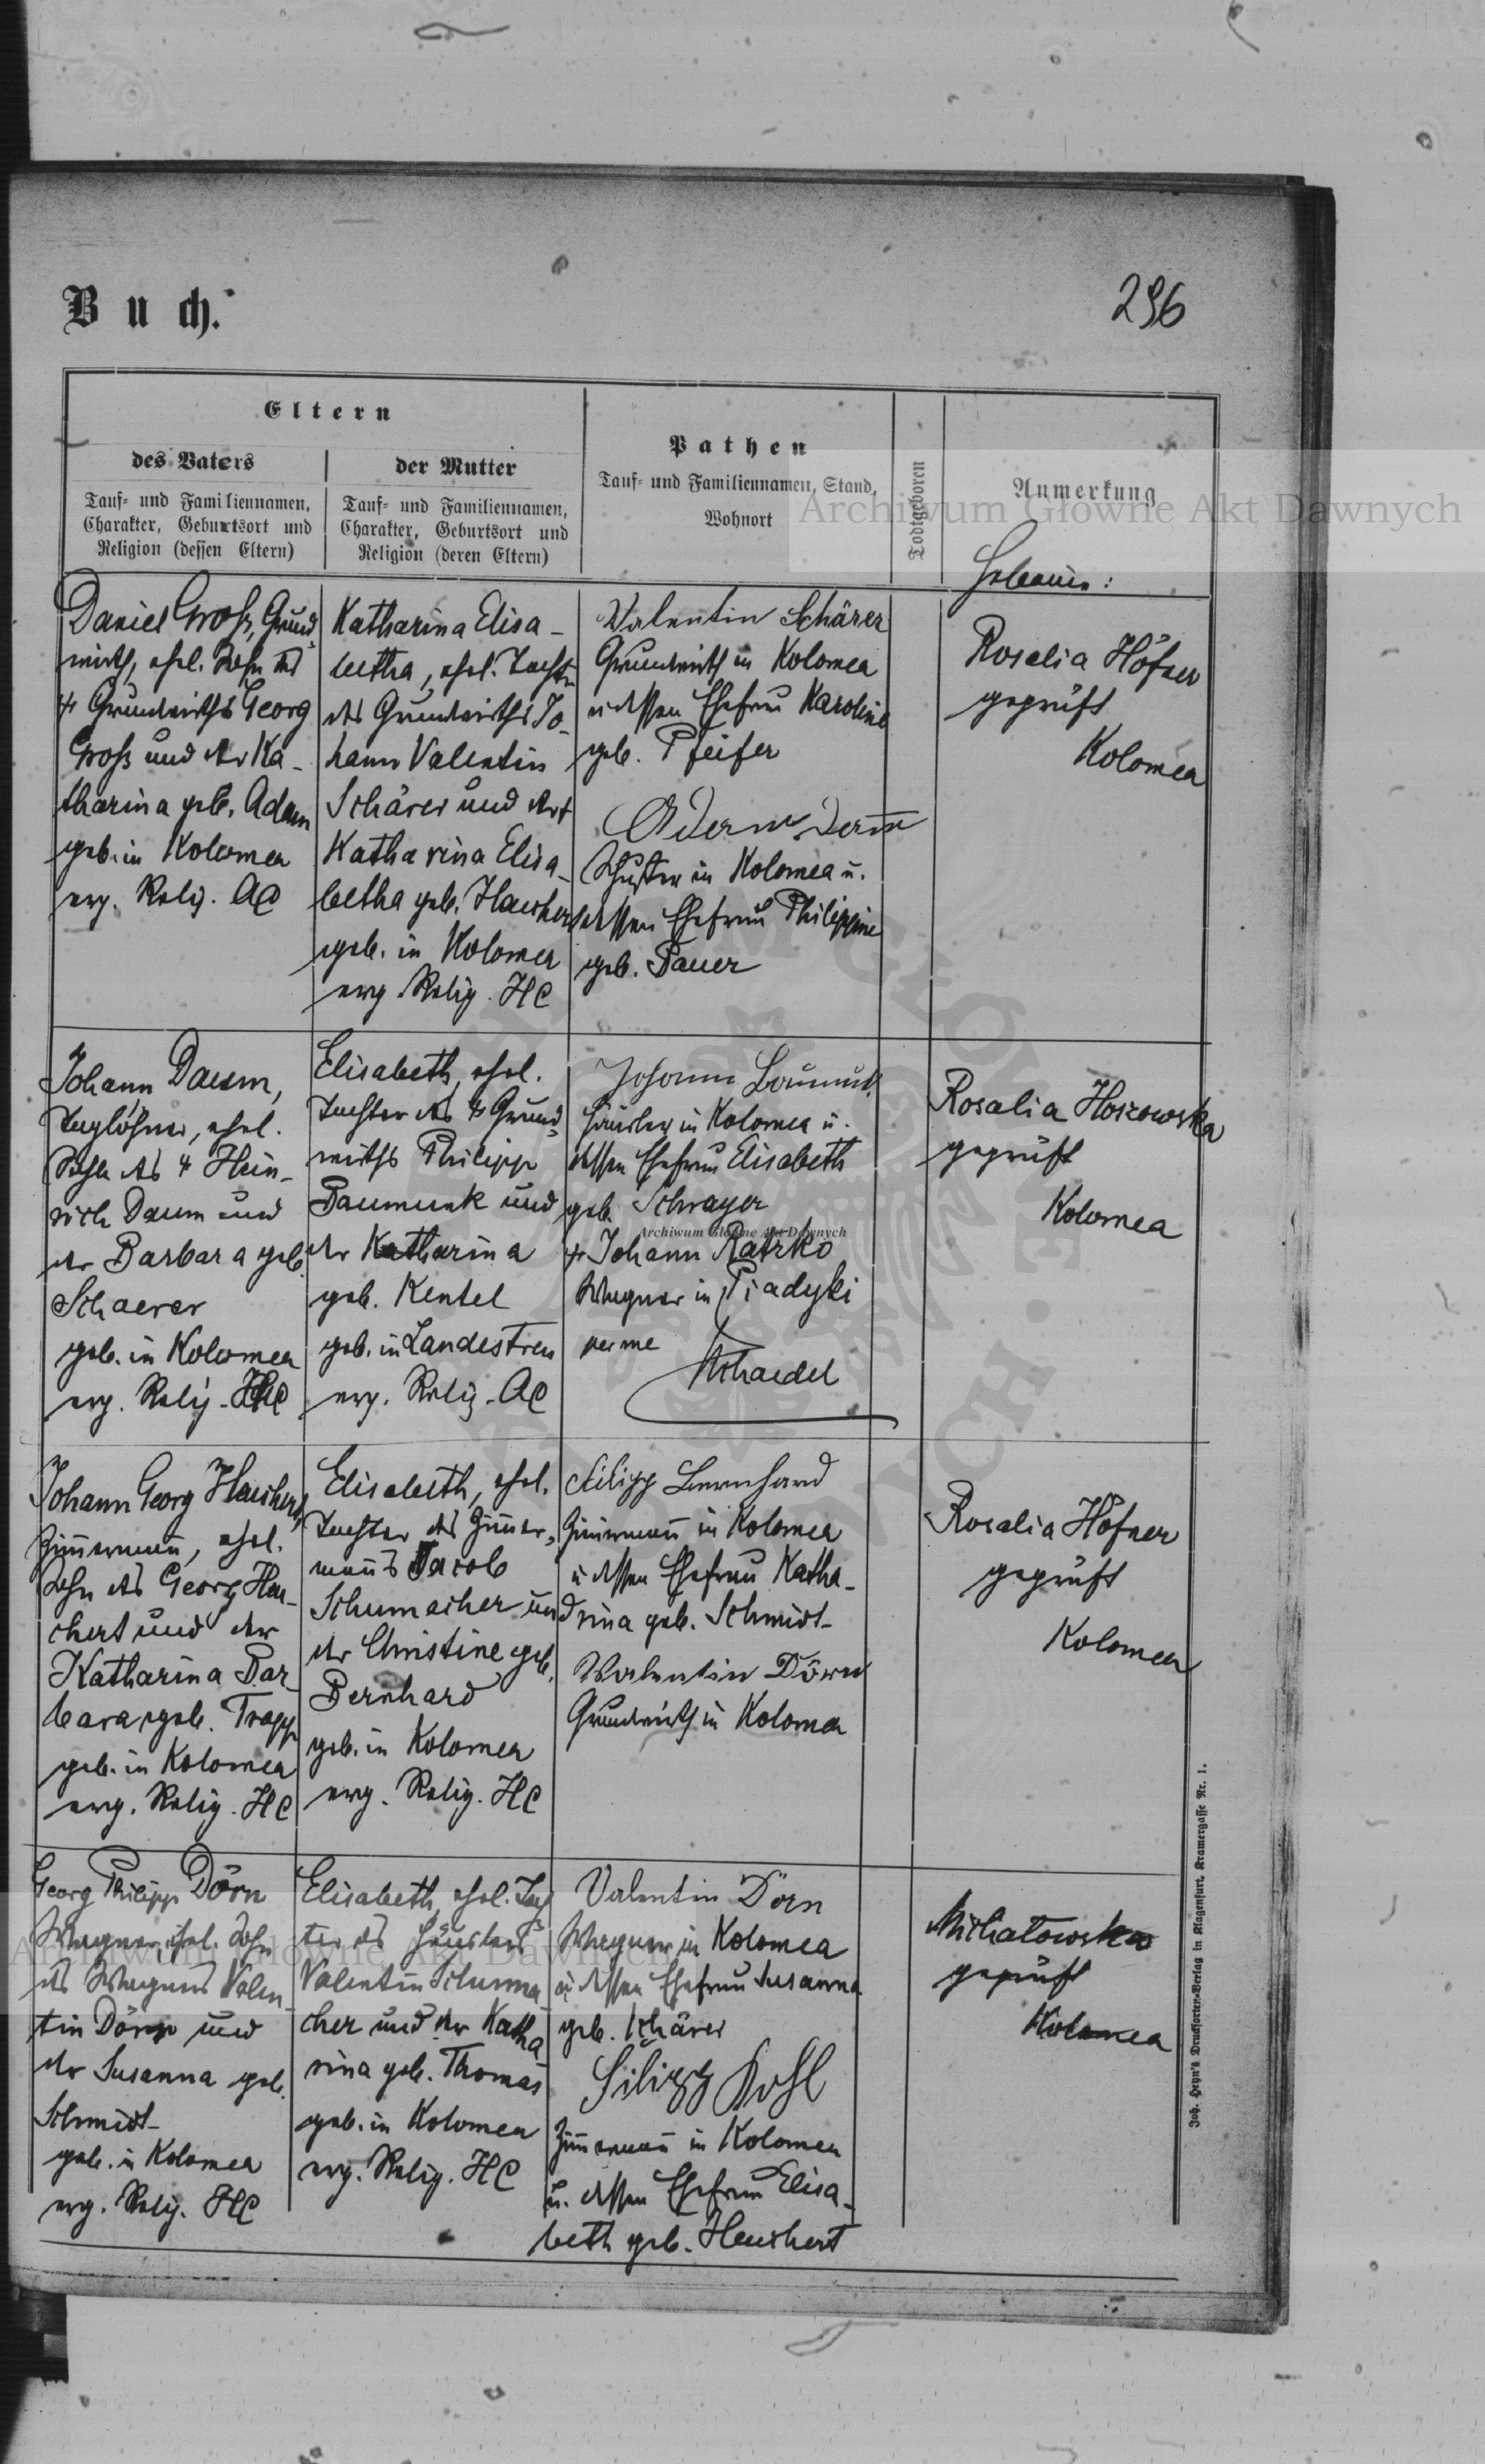 Buch.
296
Eltern
des Vaters
Tauf- und Familiennamen,
Charakter, Geburtsort und
Religion (dessen Eltern)
der Mutter
Tauf- und Familiennamen,
Charakter, Geburtsort und
Religion (deren Eltern)
Pathen
Tauf- und Familiennamen, Stand,
Wohnort
Todtgeboren
Anmerkung
Archiwum Główne Akt Dawnych
Hebamme:
Daniel Groß, Grund-
wirth, ehel. Sohn des
† Grundwirths Georg
Groß und der Ka-
tharina geb. Adam
geb. in Kolomea
evg. Relig. AC
Katharina Elisa-
betha, ehel. Tochter
des Grundwirths Jo-
hann Valentin
Schärer und der
Katharina Elisa-
betha geb. Hauchert
geb. in Kolomea
evg. Relig. HC
Valentin Schärer
Grundwirth in Kolomea
u dessen Ehefrau Karoline
geb. Pfeifer
Schuster in Kolomea u.
dessen Ehefrau Philippine
geb. Bauer
Rosalia Höfner
geprüft
Kolomea
Johann Daum,
Taglöhner, ehel.
Sohn des † Hein-
rich Daum und
der Barbara geb.
Schaerer
geb. in Kolomea
evg. Relig. HC
Elisabeth, ehel.
Tochter des † Grund-
wirths Philipp
Baumunk und
der Katharina
geb. Kentel
geb. in Landestreu
evg. Relig. AC
Johann Baumunk
Häusler in Kolomea u.
dessen Ehefrau Elisabeth
geb. Schrayer
Archiwum Główne Akt Dawnych
† Johann Ratzko
Wagner in Piadyki
per me
Schaedel
Rosalia Hoszowska
geprüft
Kolomea
Johann Georg Hauchert
Zimmermann, ehel.
Sohn des Georg Hau-
chert und der
Katharina Bar-
bara geb. Trapp
geb. in Kolomea
evg. Relig. HC
Elisabeth, ehel.
Tochter des Zimmer-
manns Jacob
Schumacher und
der Christine geb.
Bernhard
geb. in Kolomea
evg. Relig. HC
Filipp Bernhard
Zimmermann in Kolomea
u dessen Ehefrau Katha-
rina geb. Schmidt
Valentin Dörn
Grundwirth in Kolomea
Rosalia Höfner
geprüft
Kolomea
Georg Philipp Dörn
Wagner, ehel. Sohn
des Wagners Valen-
tin Dörn und
der Susanna geb.
Schmidt
geb. in Kolomea
evg. Relig. HC
Elisabeth, ehel. Toch-
ter des Häuslers
Valentin Schuma-
cher und der Katha-
rina geb. Thomas
geb. in Kolomea
evg. Relig. HC
Valentin Dörn
Wagner in Kolomea
u dessen Ehefrau Susanna
geb. Schärer
Filipp Kohl
Zimmermann in Kolomea
u. dessen Ehefrau Elisa-
beth geb. Hauchert
Michatowska
geprüft
Kolomea
Archiwum Główne Akt Dawnych
Joh. Heyn's Drucksorten-Verlag in Klagenfurt, Kramergasse Nr. 1.